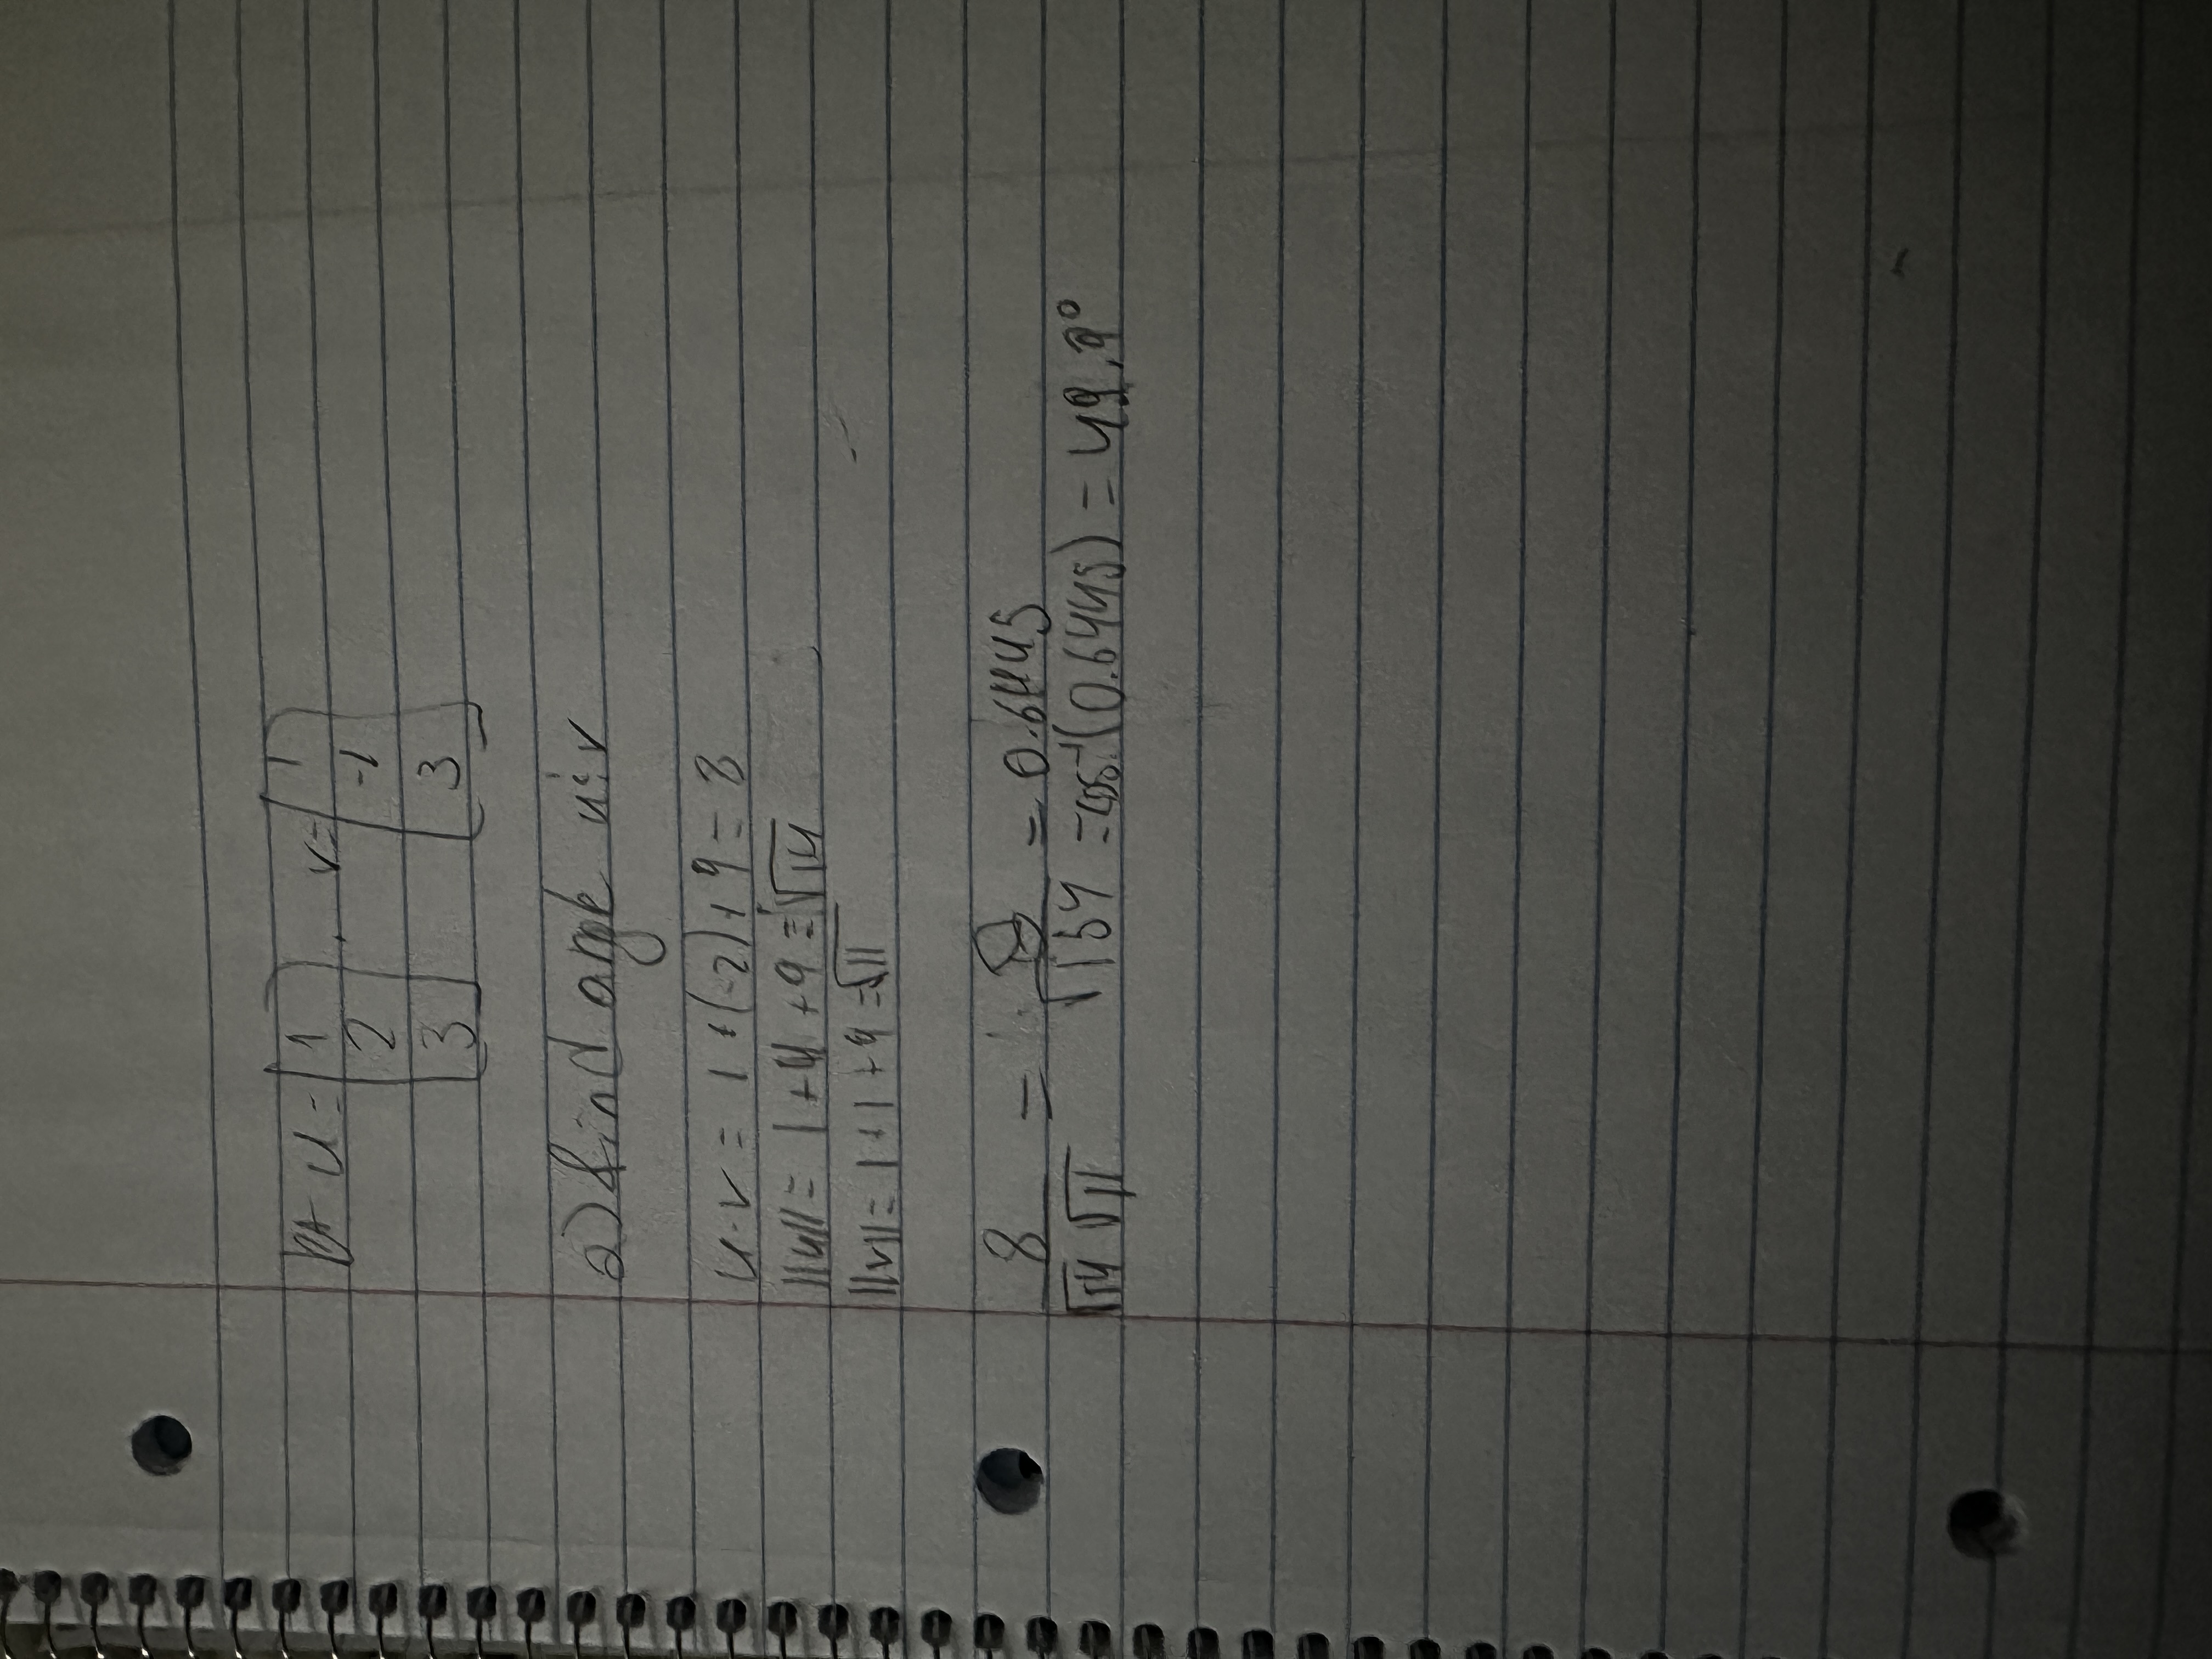 let u = [1 2 3], v = [1 -1 3]
a) find angle u & v
u·v = 1 + (-2) + 9 = 8
||u|| = 1 + 4 + 9 = √14
||v|| = 1 + 1 + 9 = √11
8 / √14 √11 = 8 / √154 = 0.6445
= cos⁻¹(0.6445) = 49.9°